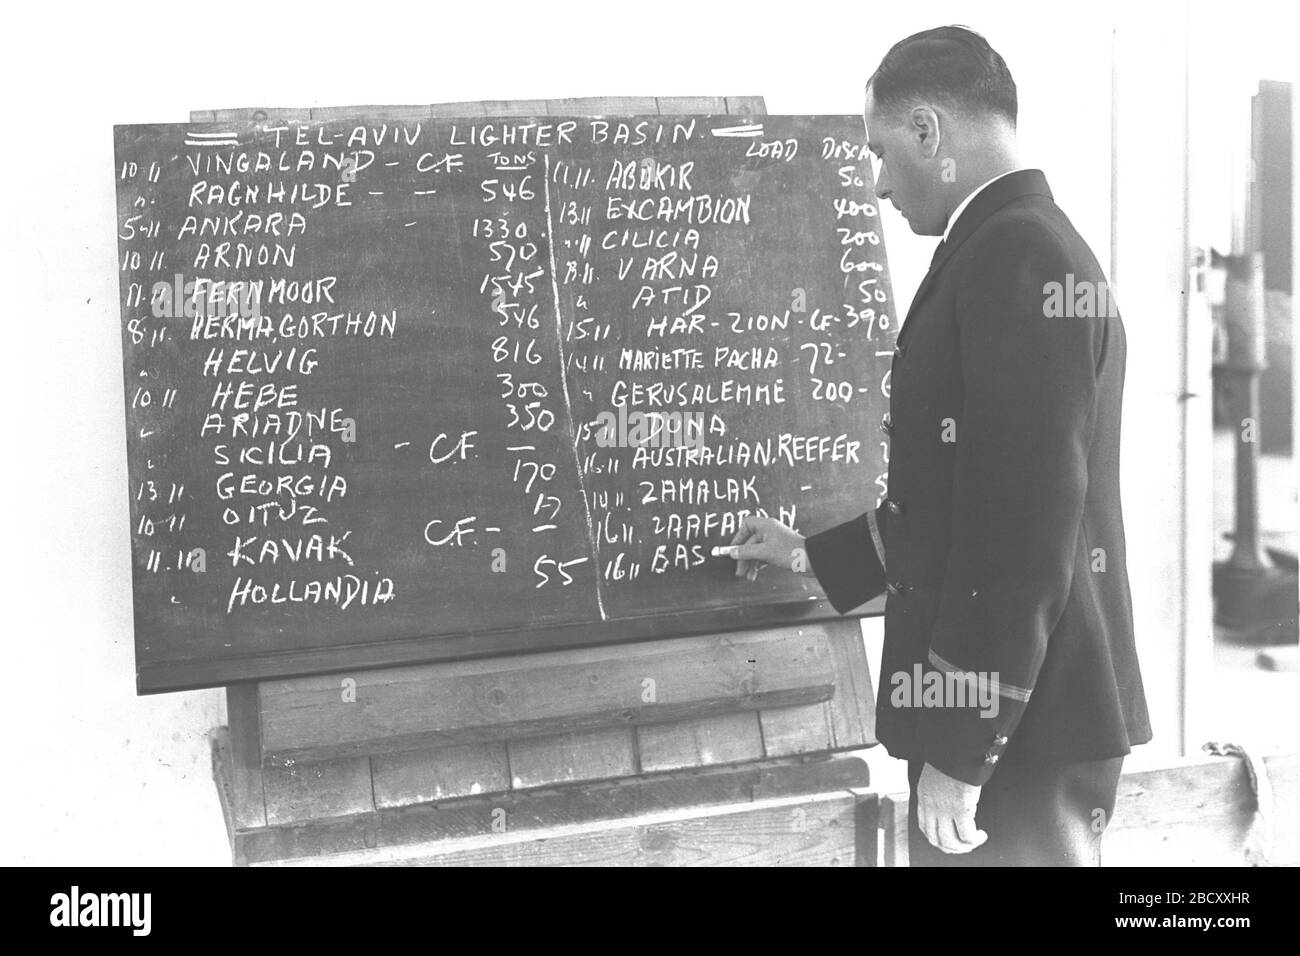 TEL-AVIV LIGHTER BASIN.
TONS
10.11 VINGALAND - C.F.
" RAGNHILDE - - 546
5-11 ANKARA - 1330
10 11. ARNON 570
11-11. FERNMOOR 1545
8.11. HERMA,GORTHON 546
" HELVIG 816
10.11 HEBE 300
" ARIADNE 350
" SICILIA - C.F. -
13 11. GEORGIA 170
10-11 OITUZ 17
11.11 KAVAK C.F. - -
" HOLLANDIA 55
LOAD DISCH
11.11. ABUKIR 50
13.11 EXCAMBION 400
".11 CILICIA 200
13.11 VARNA 600
" ATID 50
15.11 HAR-ZION-C.F.-390
14.11 MARIETTE PACHA -72- -
" GERUSALEMME 200-
15.11 DUNA
16.11 AUSTRALIAN,REEFER 2
14.11. ZAMALAK - 5
16.11. ZAAFARAN
16.11 BAS
alamy
Image ID: 2BCXXHR
www.alamy.com